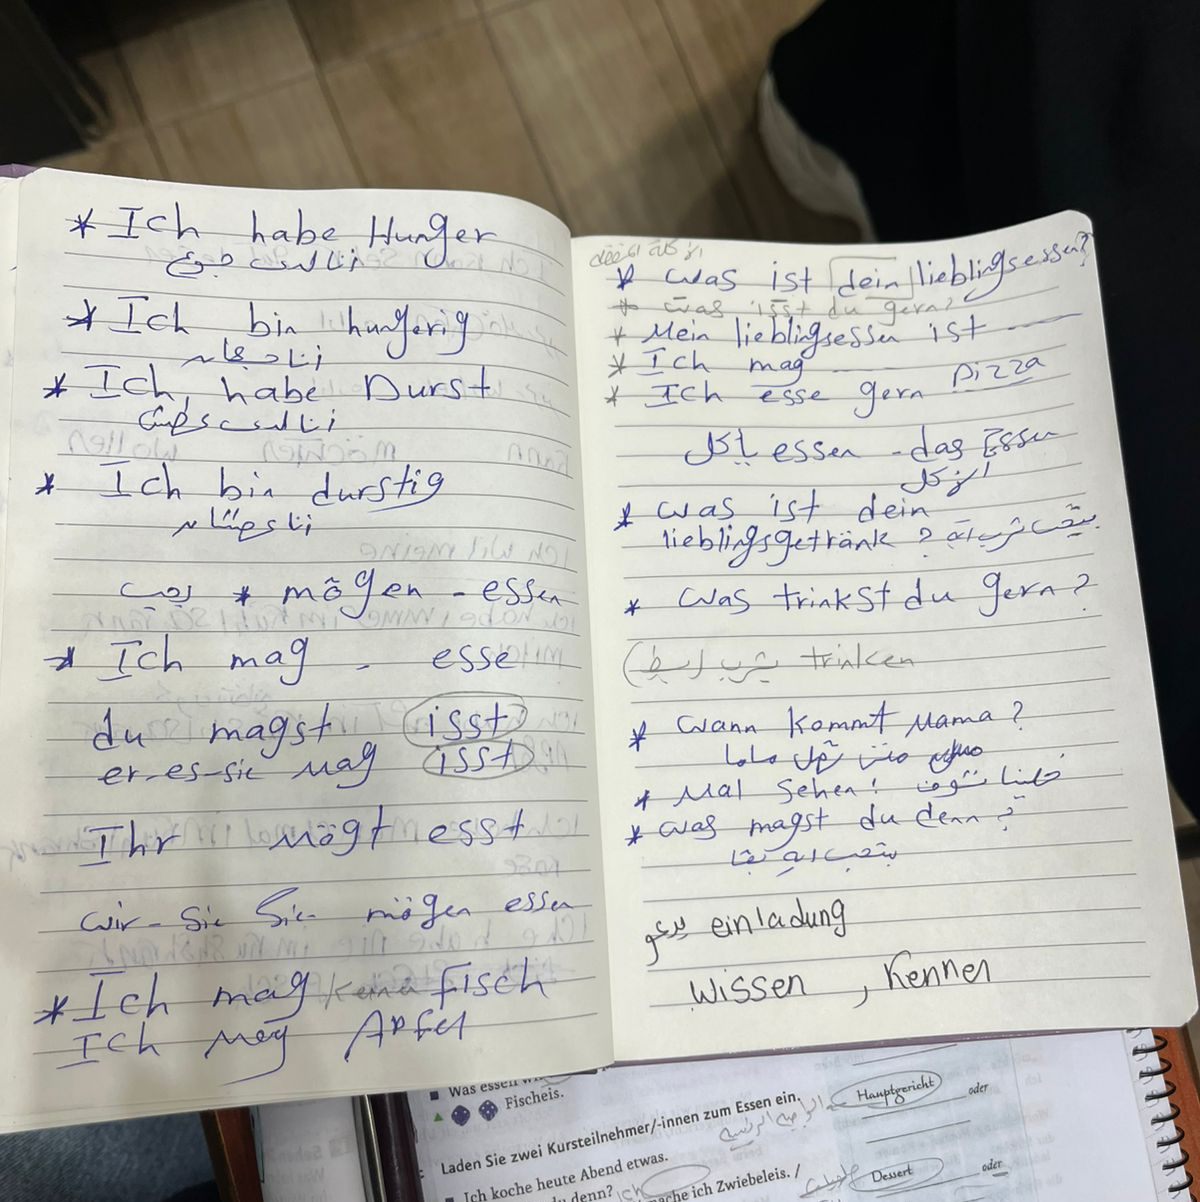 * Ich habe Hunger
انا لدى جوع
* Ich bin hungerig
انا جعان
* Ich habe Durst
انا لدى عطش
* Ich bin durstig
انا عطشان
يحب * mögen - essen
* Ich mag - esse
du magst isst
er-es-sie mag isst
Ihr mögt esst
wir - Sie Sie mögen essen
* Ich mag Keine Fisch
Ich mag Apfel
* was ist dein lieblingsessen?
* was isst du gern?
* Mein lieblingsessen ist
* Ich mag
* Ich esse gern Pizza
يأكل essen - das Essen
الأكل
* was ist dein
lieblingsgetränk ? بتحب تشرب ايه
* was trinkst du gern?
يشرب trinken
* wann kommt Mama?
ماما
* Mal sehen! خلينا نشوف
* was magst du denn?
بتحب ايه بقا
يدعو einladung
wissen , Kennen
Was essen
Fischeis.
Laden Sie zwei Kursteilnehmer/-innen zum Essen ein.
الرئيسية
Hauptgericht oder
Ich koche heute Abend etwas.
denn? ich Zwiebeleis. /
Dessert oder